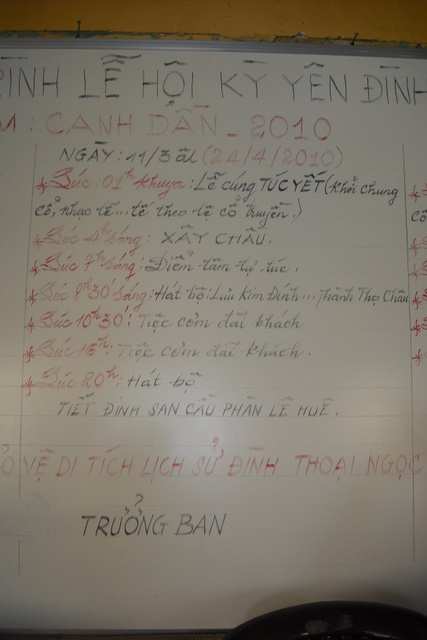 RÌNH LỄ HỘI KỲ YÊN ĐÌNH
M : CANH DẦN _ 2010
NGÀY : 11/3 âl (24/4/2010)
Lúc : 01h khuya : Lễ cúng TÚC YẾT (khởi chung
cổ, nhạc tế... tế theo lệ cổ truyền.)
Lúc 4h sáng : XÂY CHẦU.
Lúc 7h sáng : Điểm tâm tự túc.
Lúc 8h30 sáng : Hát bộ : Lưu Kim Đính... Thành Thọ Châu
Lúc 10h30 : Tiệc cơm đãi khách
Lúc 16h : Tiệc cơm đãi khách.
Lúc 20h : Hát bộ
TIẾT ĐINH SAN CẦU PHÀN LÊ HUÊ.
O VỆ DI TÍCH LỊCH SỬ ĐÌNH THOẠI NGỌC
TRƯỞNG BAN